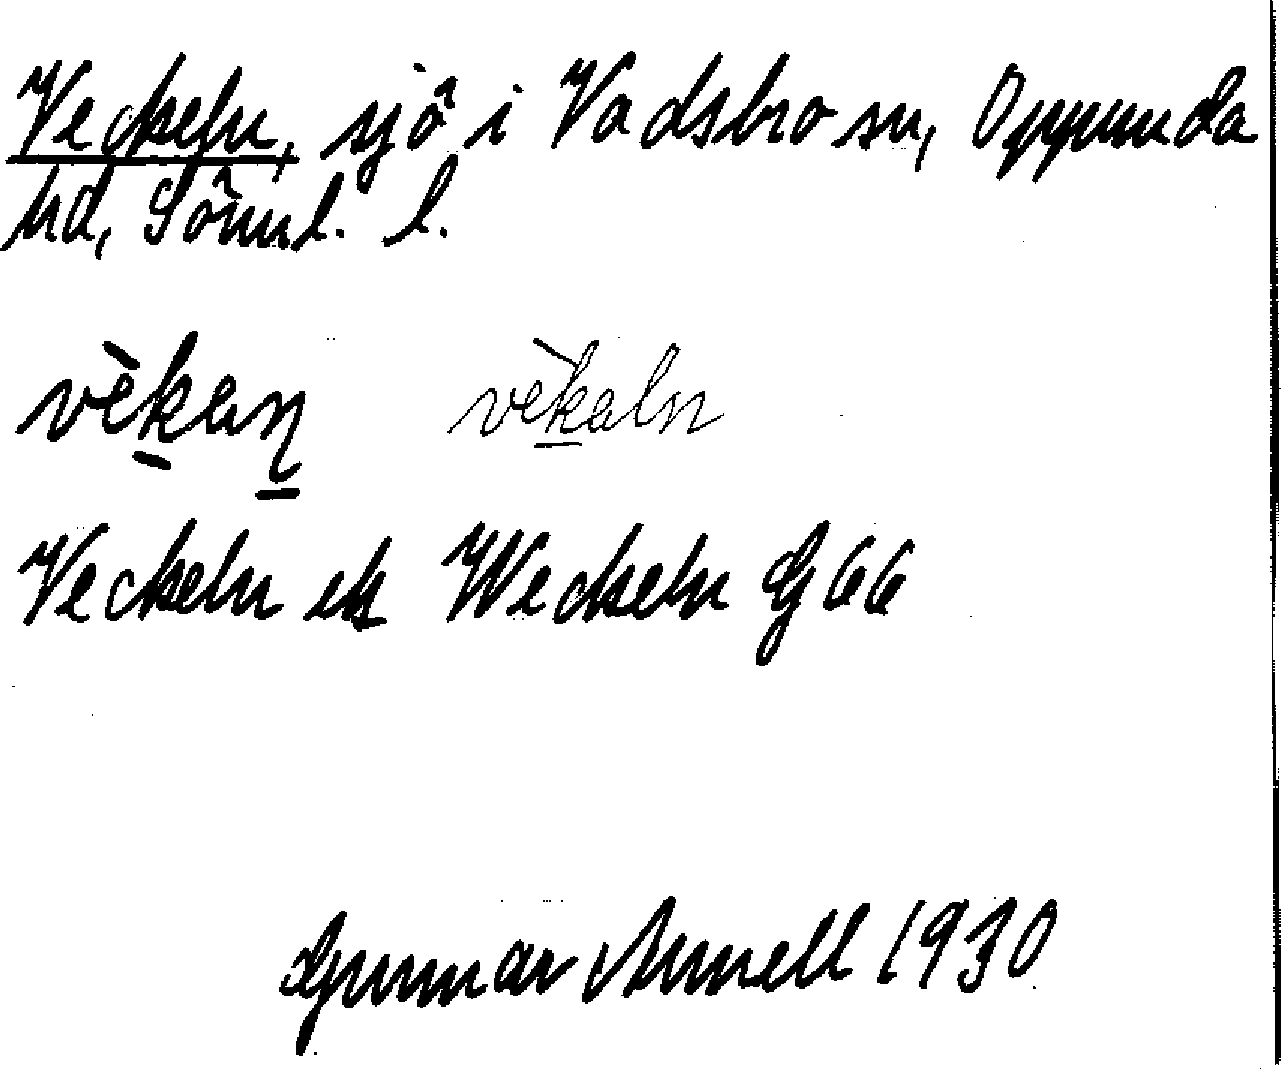 Veckeln, sjö i Vadsbro sn, Oppunda
hd, Söml. l.
vèkan vèkaln
Veckeln ek Weckeln G 66
Gunnar Arnell 1930